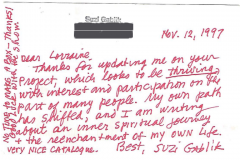 Suzi Gablik
Nov. 12, 1997
Dear Lorraine,
Thanks for updating me on your
project, which looks to be thriving,
with interest and participation on the
part of many people. My own path
has shifted, and I am writing
about an inner spiritual journey
+ the reenchantment of my own life.
VERY NICE CATALOGUE. Best, Suzi Gablik